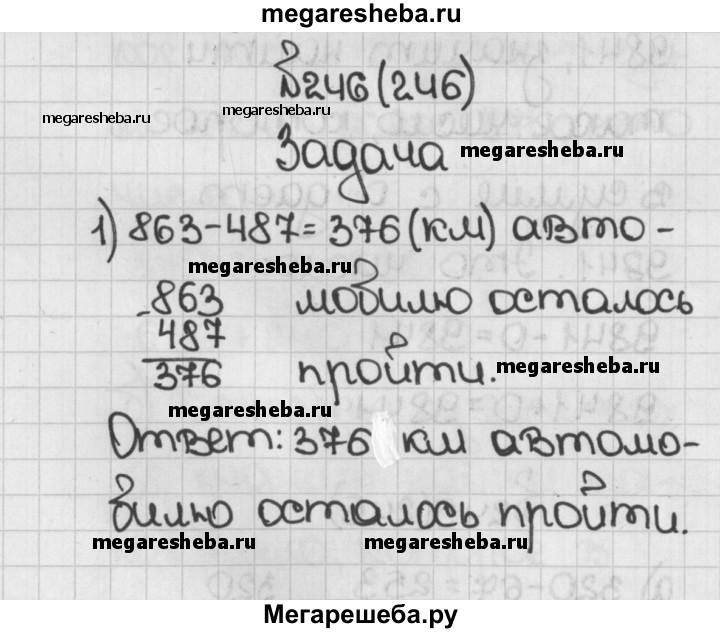 megaresheba.ru
№246(246)
megaresheba.ru
megaresheba.ru
Задача
megaresheba.ru
1) 863-487=376(км) авто-
megaresheba.ru
-863 мобилю осталось
487
376 пройти.
megaresheba.ru
megaresheba.ru
Ответ: 376 км автомо-
билю осталось пройти.
megaresheba.ru
megaresheba.ru
Мегарешеба.ру